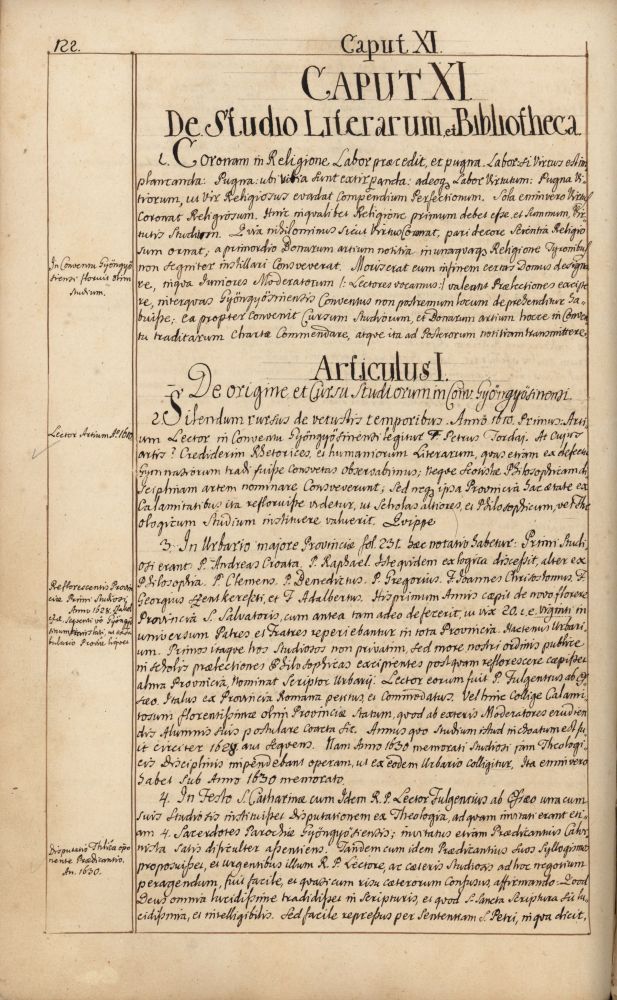 122.
Caput XI.
CAPUT XI
De Studio Literarum, et Bibliotheca
1. Coronam in Religione Labor præcedit, et pugna. Labor si Virtus est im
plantanda: Pugna: ubi vitia sunt extirpanda: adeoq Labor Virtutum: Pugna Vi
tiorum, ut Vir Religiosus evadat Compendium Perfectionum. Sola enimvero Virtus
Coronat Religiosum. Hinc in qualibet Religione primum debet esse, et summum, Vir
tutis Studium. Quia nihilominus sicut Virtus Coronat, pari decore Scientia Religio
sum ornat; a primordio Bonarum artium notitia in unaquaq Religione Tyronibus
In Conventu Gyöngyö
siensi floruit olim
Studium.
non segniter instillari Consveverat. Mos erat eum in finem certas Domus designa
re, in qua Juniores Moderatorum /: Lectores vocamus :/ valeant Prælectiones excipe
re, inter quas Gyöngyösiensis Conventus non postremum locum deprehenditur ha
buisse; ea propter convenit Cursum Studiorum, et Bonarum artium hocce in Conven
tu traditarum Chartæ Commendare, atque ita ad Posterorum notitiam transmittere.
Articulus I.
De origine, et Cursu Studiorum in Conv: Gyöngyösiensi.
2. Silendum rursus de vetustis temporibus. Anno 1610. Primus Arti
Lector Artium Aº 1610
um Lector in Conventu Gyöngyösiensi legitur P. Petrus Tordaj. At Cujus
artis? Crediderim Rhetorices, et humaniorum Literarum, quas etiam ex defectu
Gymnasiorum tradi fuisse Consvetas observabimus; neque
sciplinam artem nominare Consveverunt; Sed neq ipsa Provincia hac ætate ex
Calamitatibus ita refloruisse videtur, ut Scholas altiores, et Philosophicum, vel The
ologicum Studium instituere valuerit. Quippe
3. In Urbario majore Provinciæ fol. 231. hæc notatio habetur: Primi Studi
osi erant P. Andreas Croata, P. Raphael. Iste quidem ex logica discessit, alter ex
Reflorescentis Provin
ciæ Primi Studiosi
Anno 1628.
Philosophia. P. Clemens. P. Benedictus. P. Gregorius. F. Joannes Christophorus. F.
Georgius Szentkereszti, et F. Adalbertus. His primum Annis cæpit de novo florere
Provincia S. Salvatoris, cum antea tam adeo defecerit, ut vix 20. i.e. viginti in
universum Patres et Fratres reperiebantur in tota Provincia. Hactenus Urbari
um. Primos itaque hos Studiosos non privatim, sed more nostri ordinis publice
in Scholis prælectiones Philosophicas excipientes postquam reflorescere cæpisset
alma Provincia, nominat Scriptor Urbarij. Lector eorum fuit P. Fulgentius ab E
sæo. Italus ex Provincia Romana petitus, et Commodatus. Vel hinc collige Calami
tosum florentissimæ olim Provinciæ Statum, quod ab exteris Moderatores erudien
dis Alumnis suis postulare coacta sit. Annus quo Studium istud inchoatum est fu
it circiter 1628 aut sequens. Nam Anno 1630 memorati Studiosi jam Theologi
cis Disciplinis impendebant operam, ut ex eodem Urbario colligitur. Ita enimvero
habet sub Anno 1630 memorato.
4. In Festo S. Catharinæ cum Idem R. P. Lector Fulgentius ab Esæo una cum
suis Studiosis instituisset Disputationem ex Theologia, ad quam invitati erant eti
am 4. Sacerdotes Parochiæ Gyöngyösiensis; invitatus etiam Prædicantius Calvi
nista satis difficulter assentiens. Tandem cum idem Prædicantius suos Syllogismos
Disputatio Thlica oppo
nente Prædicantio.
An. 1630.
proposuisset, et urgentibus illum R. P. Lectore, ac cæteris Studiosis ad hoc negotium
peragendum, fuit facile, et quasi cum risu cæterorum Confusus, affirmando: Quod
Deus omnia lucidissime tradidisset in Scripturis, et quod S. Sancta Scriptura sit lu
cidissima, et intelligibilis. Sed facile repressus per Sententiam S. Petri, in qua dicit,